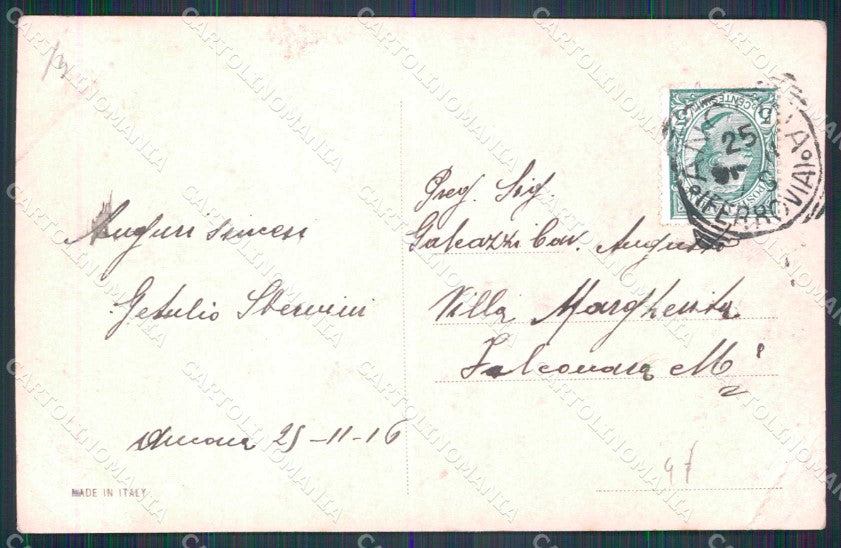 Auguri sinceri
Getulio
Ancona 25-11-16
MADE IN ITALY
Preg. Sig.
Galeazzi Cav. Augusto
Villa Margherita
Falconara Mª
47
CENTES 5
POSTE
ANCONA
25
(FERROVIA)
CARTOLINOMANIA